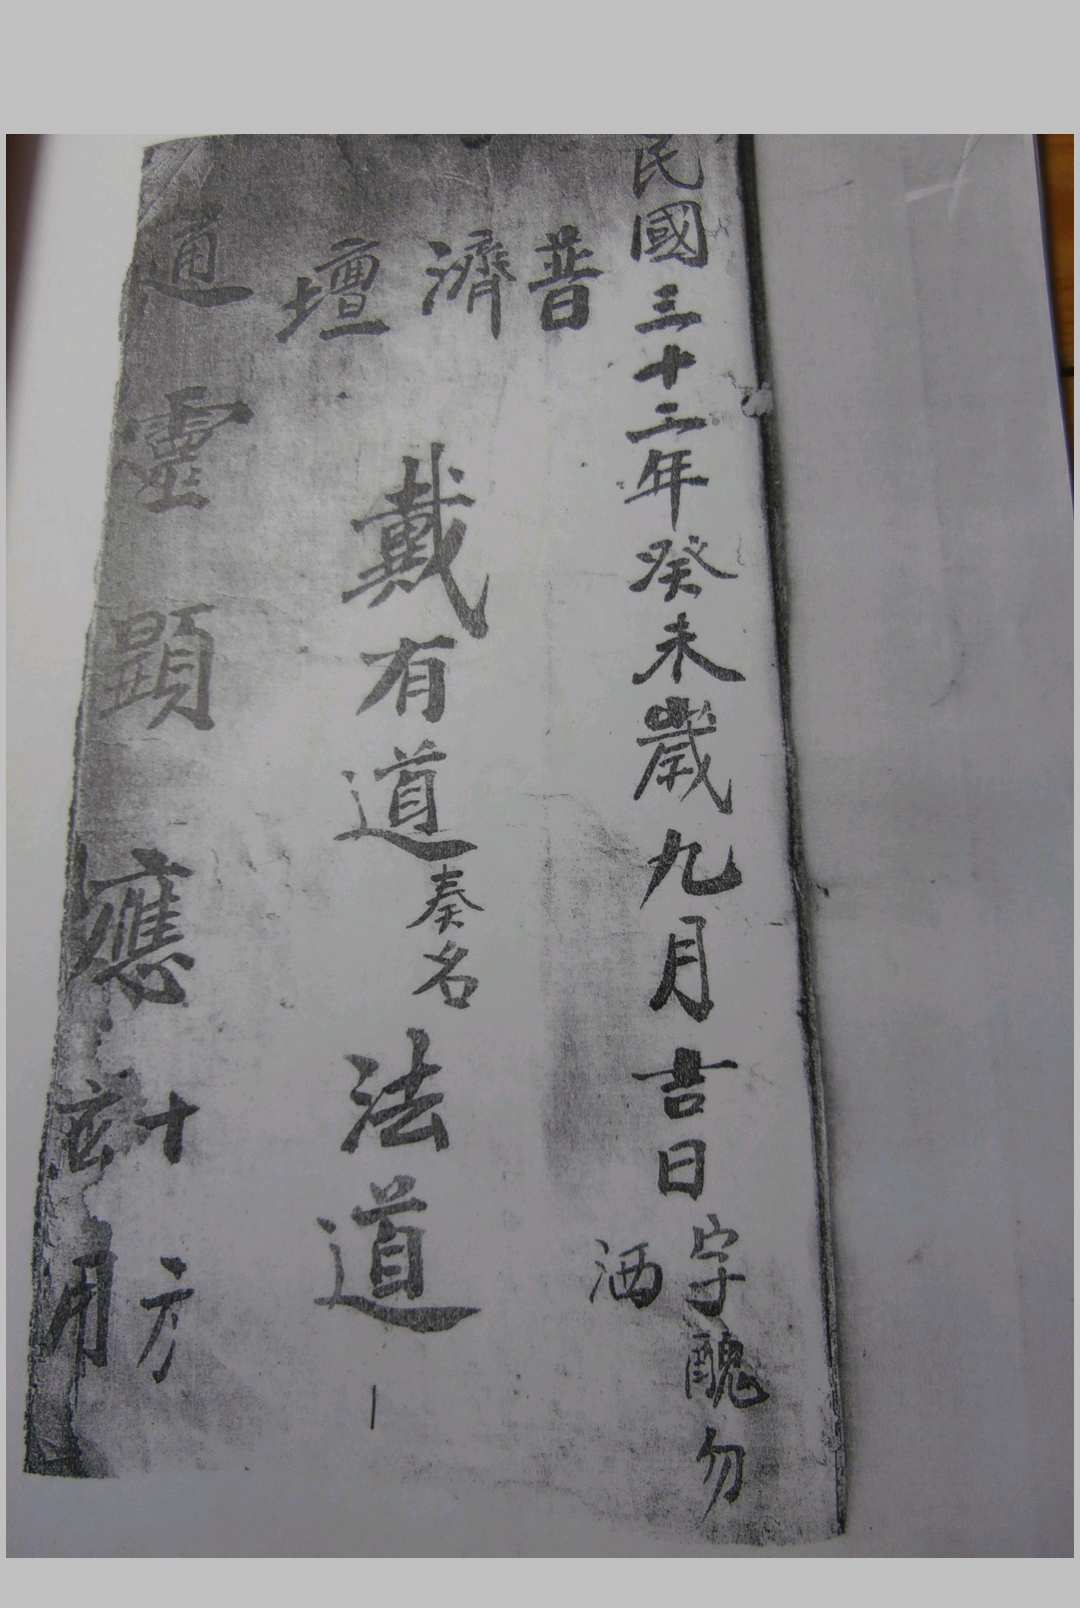 民國三十二年癸未歲九月吉日
字醜勿
洒
普濟壇
戴有道奏名法道
通靈顯應
十方
应用